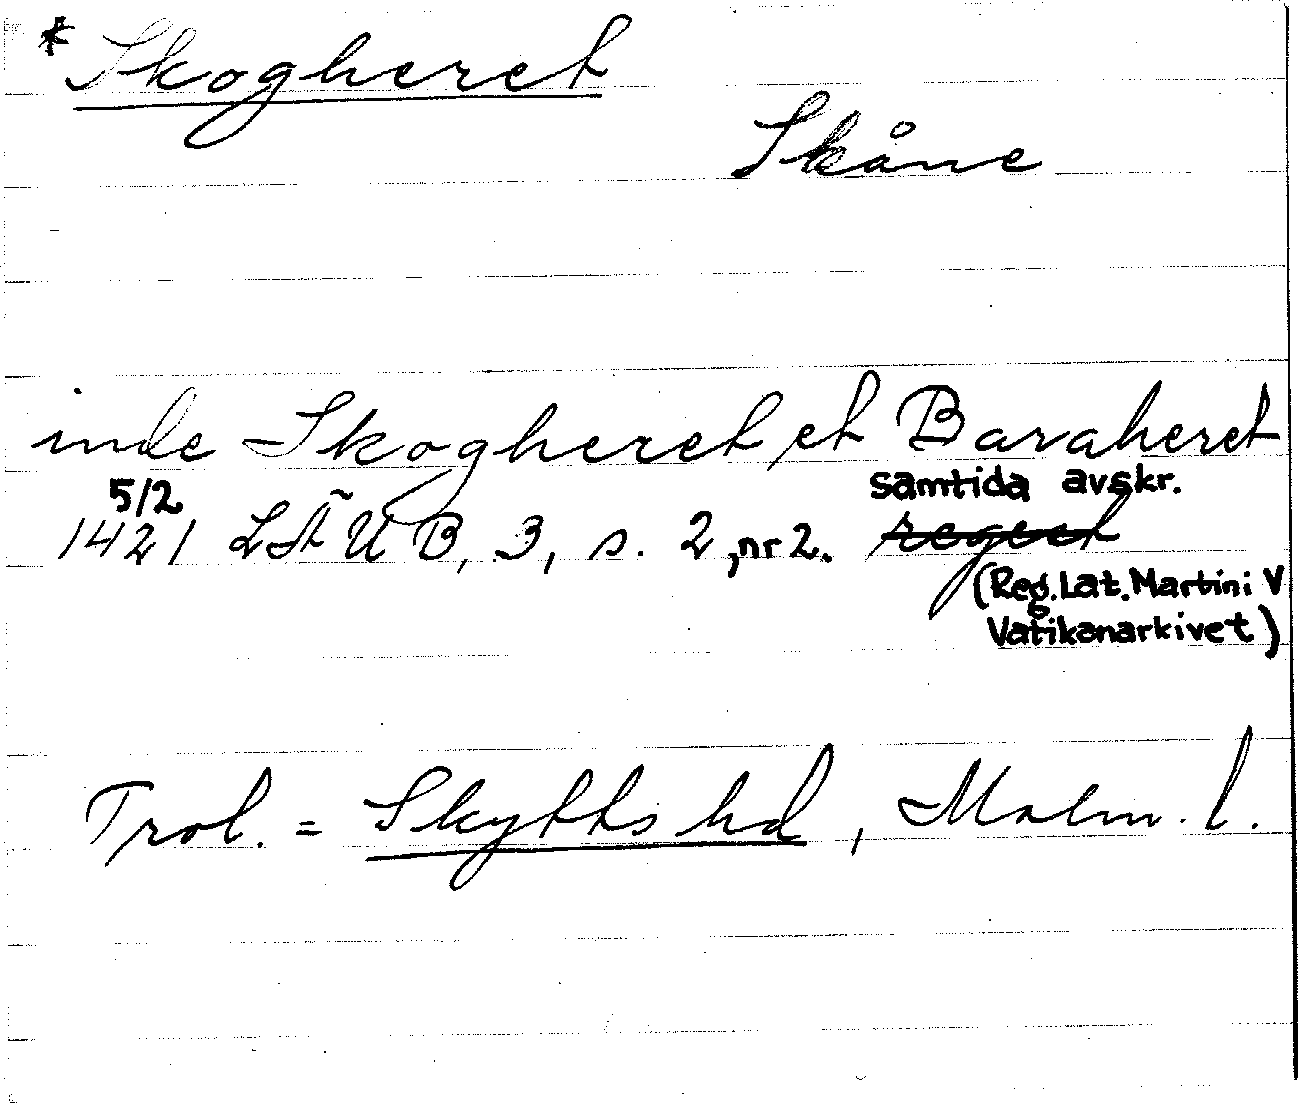 * Skogheret
Skåne
inde Skogheret et Baraheret
5/2 samtida avskr.
1421 LÄUB, 3, s. 2, nr 2. regest
(Reg. Lat. Martini V
Vatikanarkivet)
Trol. = Skytts hd, Malm. l.